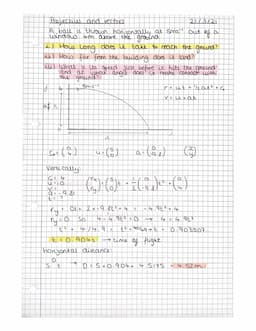 Projectiles and vectors 21/3/21
A ball is thrown horizontally at 5ms⁻¹ out of a
window 4m above the ground.
i) How long does it take to reach the ground?
ii) How far from the building does it land?
iii) What is its speed just before it hits the ground
and at what angle does it make contact with
the ground?
5ms⁻¹
r = ut + ½at² + r₀
v = u + at
Vertically:
u = 0
a = -9.8
r_y = 0t + ½ × -9.8t² + 4 = -4.9t² + 4
r_y = 0 So 4 - 4.9t² = 0 → 4 = 4.9t²
t = 0.904s → time of flight
horizontal distance:
D = 5 × 0.904 = 4.5175 = 4.52m